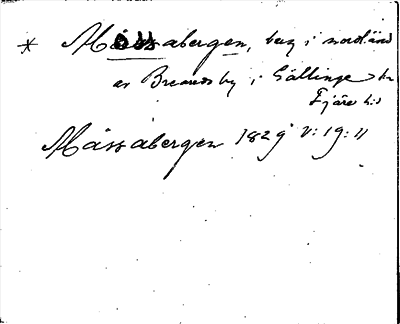 * Mossabergen, berg i nordländ
av Bremdsby i Gällinge sn
Fjäre hd
Mässabergen 1829 V:19:11